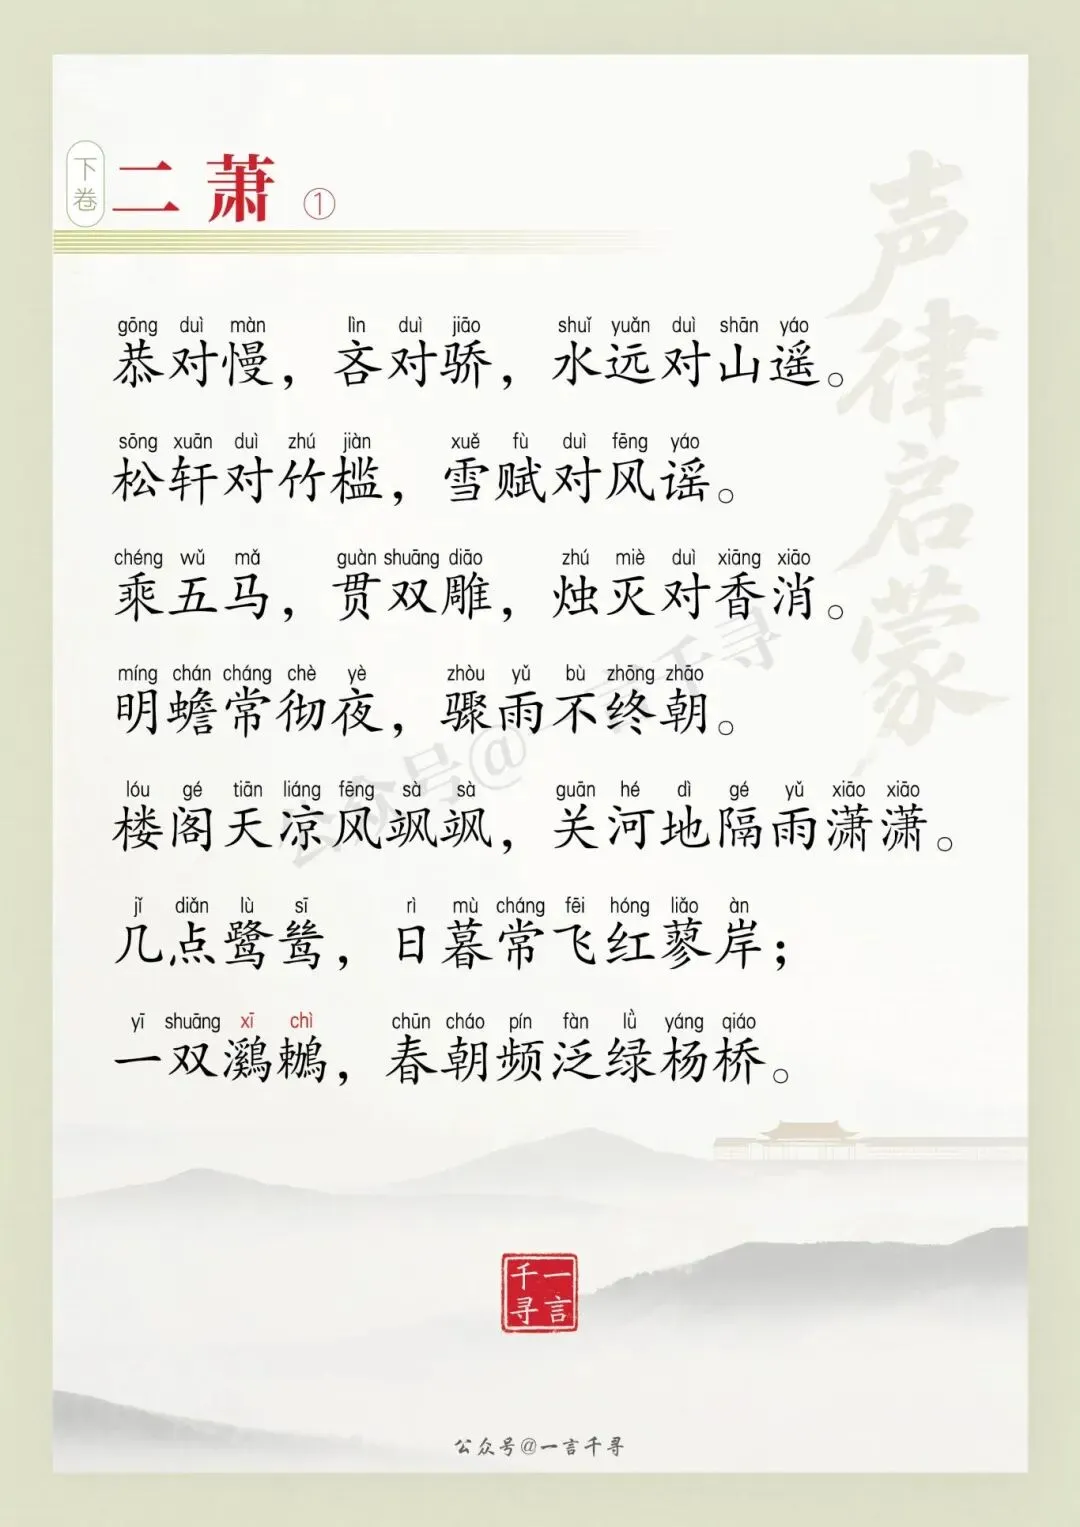 下卷
二萧 ①
声律启蒙
gōng duì màn lìn duì jiāo shuǐ yuǎn duì shān yáo
恭对慢，吝对骄，水远对山遥。
sōng xuān duì zhú jiàn xuě fù duì fēng yáo
松轩对竹槛，雪赋对风谣。
chéng wǔ mǎ guàn shuāng diāo zhú miè duì xiāng xiāo
乘五马，贯双雕，烛灭对香消。
míng chán cháng chè yè zhòu yǔ bù zhōng zhāo
明蟾常彻夜，骤雨不终朝。
lóu gé tiān liáng fēng sà sà guān hé dì gé yǔ xiāo xiāo
楼阁天凉风飒飒，关河地隔雨潇潇。
jǐ diǎn lù sī rì mù cháng fēi hóng liǎo àn
几点鹭鸶，日暮常飞红蓼岸；
yī shuāng xī chì chūn cháo pín fàn lǜ yáng qiáo
一双鸂鶒，春朝频泛绿杨桥。
公众号@一言千寻
一言千寻
公众号@一言千寻